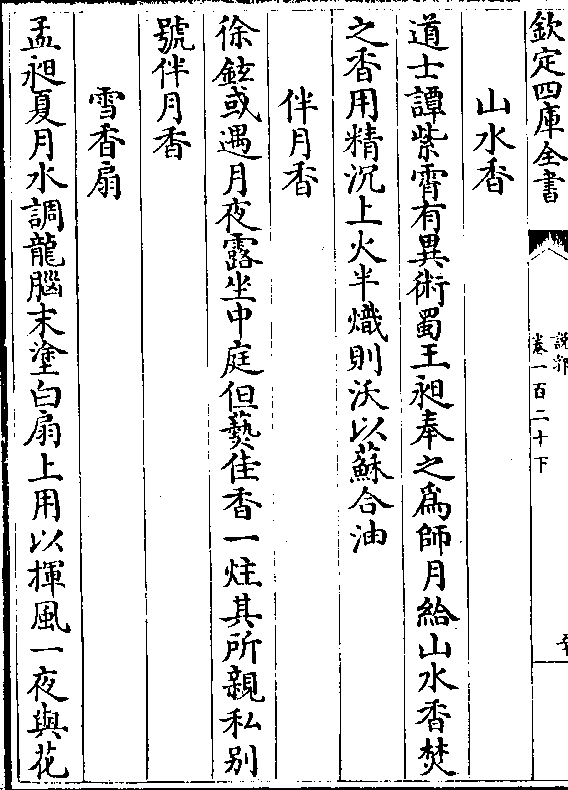 欽定四庫全書
說郛
卷一百二十下
山水香
道士譚紫霄有異術蜀王昶奉之爲師月給山水香焚
之香用精沉上火半熾則沃以蘇合油
伴月香
徐鉉或遇月夜露坐中庭但爇佳香一炷其所親私别
號伴月香
雪香扇
孟昶夏月水調龍腦末塗白扇上用以揮風一夜與花